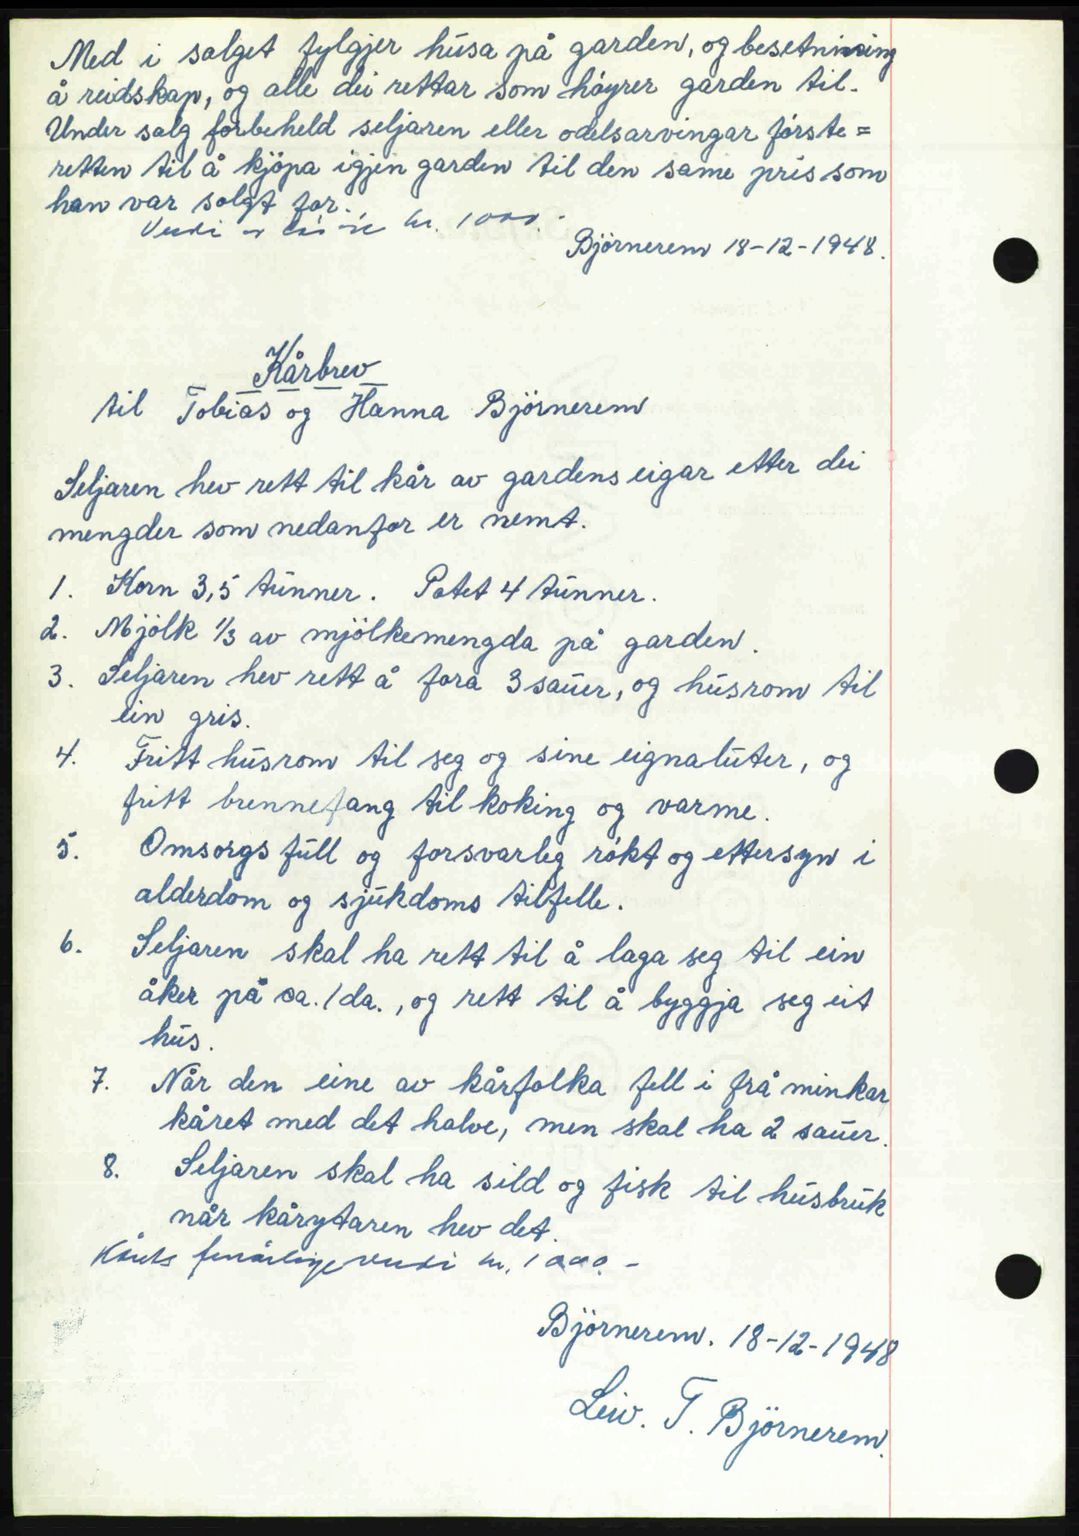 Med i salget fylgjer húsa på garden, og besetnining
å reidskap, og alle dei rettar som høyrer garden til.
Under salg forbeheld seljaren eller odelsarvingar første=
retten til å kjöpa igjen garden til den same pris som
han var solgt for.
Verdi kr. 1000.-
Björnerem 18-12-1948.
Kårbrev
til Tobias og Hanna Björnerem
Seljaren hev rett til kår av gardens eigar etter dei
mengder som nedanfor er nemt.
1. Korn 3,5 túnner. Potet 4 túnner.
2. Mjölk 1/3 av mjölkemengda på garden.
3. Seljaren hev rett å fora 3 saúer, og húsrom til
ein gris.
4. Fritt húsrom til seg og sine eignalúter, og
fritt brennefang til koking og varme.
5. Omsorgsfúll og forsvarleg rökt og ettersyn i
alderdom og sjúkdoms tilfelle.
6. Seljaren skal ha rett til å laga seg til ein
åker på ca. 1 da., og rett til å byggja seg eit
hús.
7. Når den eine av kårfolka fell i frå minkar
kåret med det halve, men skal ha 2 saúer.
8. Seljaren skal ha sild og fisk til húsbrúk
når kårytaren hev det.
Kårets femårlige verdi kr. 1000.-
Björnerem. 18-12-1948
Leiv. T. Björnerem.